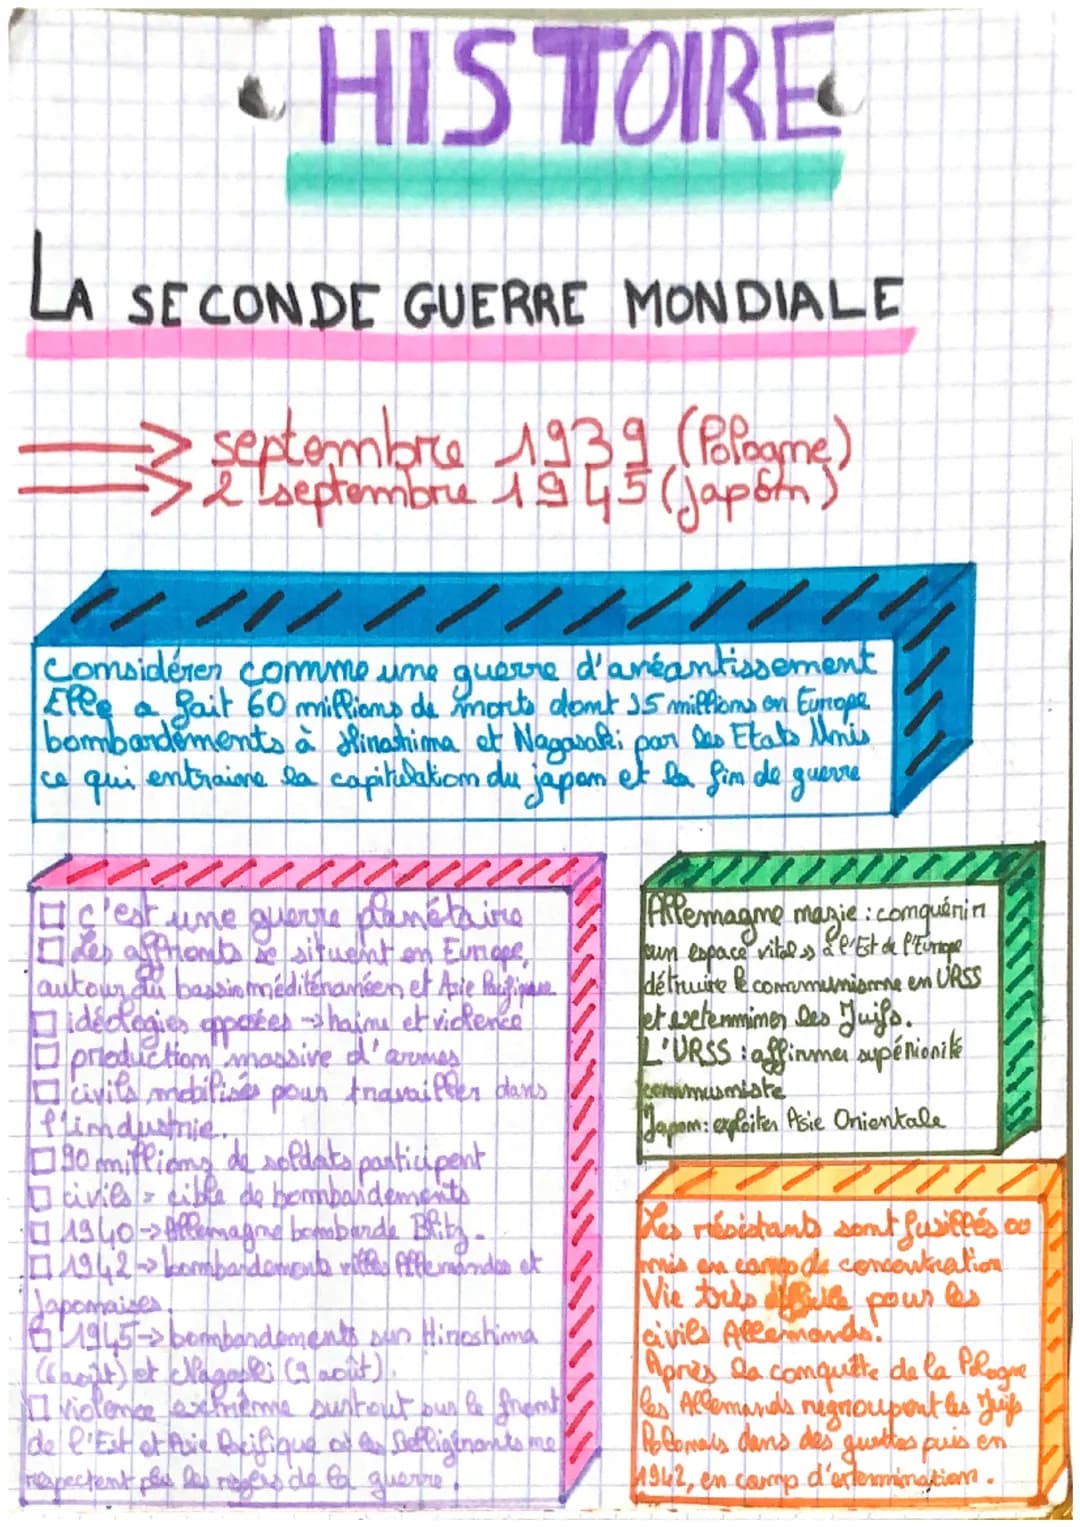 HISTOIRE
LA SECONDE GUERRE MONDIALE
septembre 1939 (Pologne)
2 septembre 1945 (japon)
Considérer comme une guerre d'anéantissement
Elle a fait 60 millions de morts dont 35 millions en Europe
bombardements à Hirashima et Nagasaki par les Etats Unis
ce qui entraine la capitulation du japon et la fin de guerre
c'est une guerre planétaire
Les affronts se situent en Europe,
autour du bassin méditénanéen et Asie Pacifique
idéologies opposées → haine et violence
production massive d'armes
civils mobilisés pour travailler dans
l'industrie.
90 millions de soldats participent
civils = cible de bombardements
1940 → Allemagne bombarde Blitz.
1942 → bombardements villes Allemandes et
Japonaises.
1945 → bombardements sur Hiroshima
(6 août) et Nagaski (9 août).
violence extrême surtout sur le front
de l'Est et Asie Pacifique où les Belligérants ne
respectent plus les règles de la guerre.
Allemagne nazie : conquérir
un espace vital » à l'Est de l'Europe
détruire le communisme en URSS
et exterminer les Juifs.
L'URSS : affirmer supériorité
communiste
Japon : exploiter Asie Orientale
Les résistants sont fusillés ou
mis en camp de concentration
Vie très difficile pour les
civils Allemands.
Après la conquête de la Pologne
les Allemands regroupent les Juifs
Polonais dans des guettos puis en
1942, en camp d'extermination.